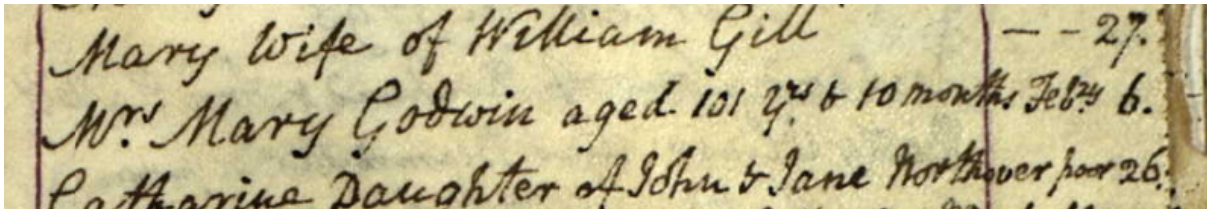 Mary Wife of William Gill - - 27.
Mrs Mary Godwin aged 101 yrs & 10 months Febry 6.
Catharine Daughter of John & Jane Northover poor 26.